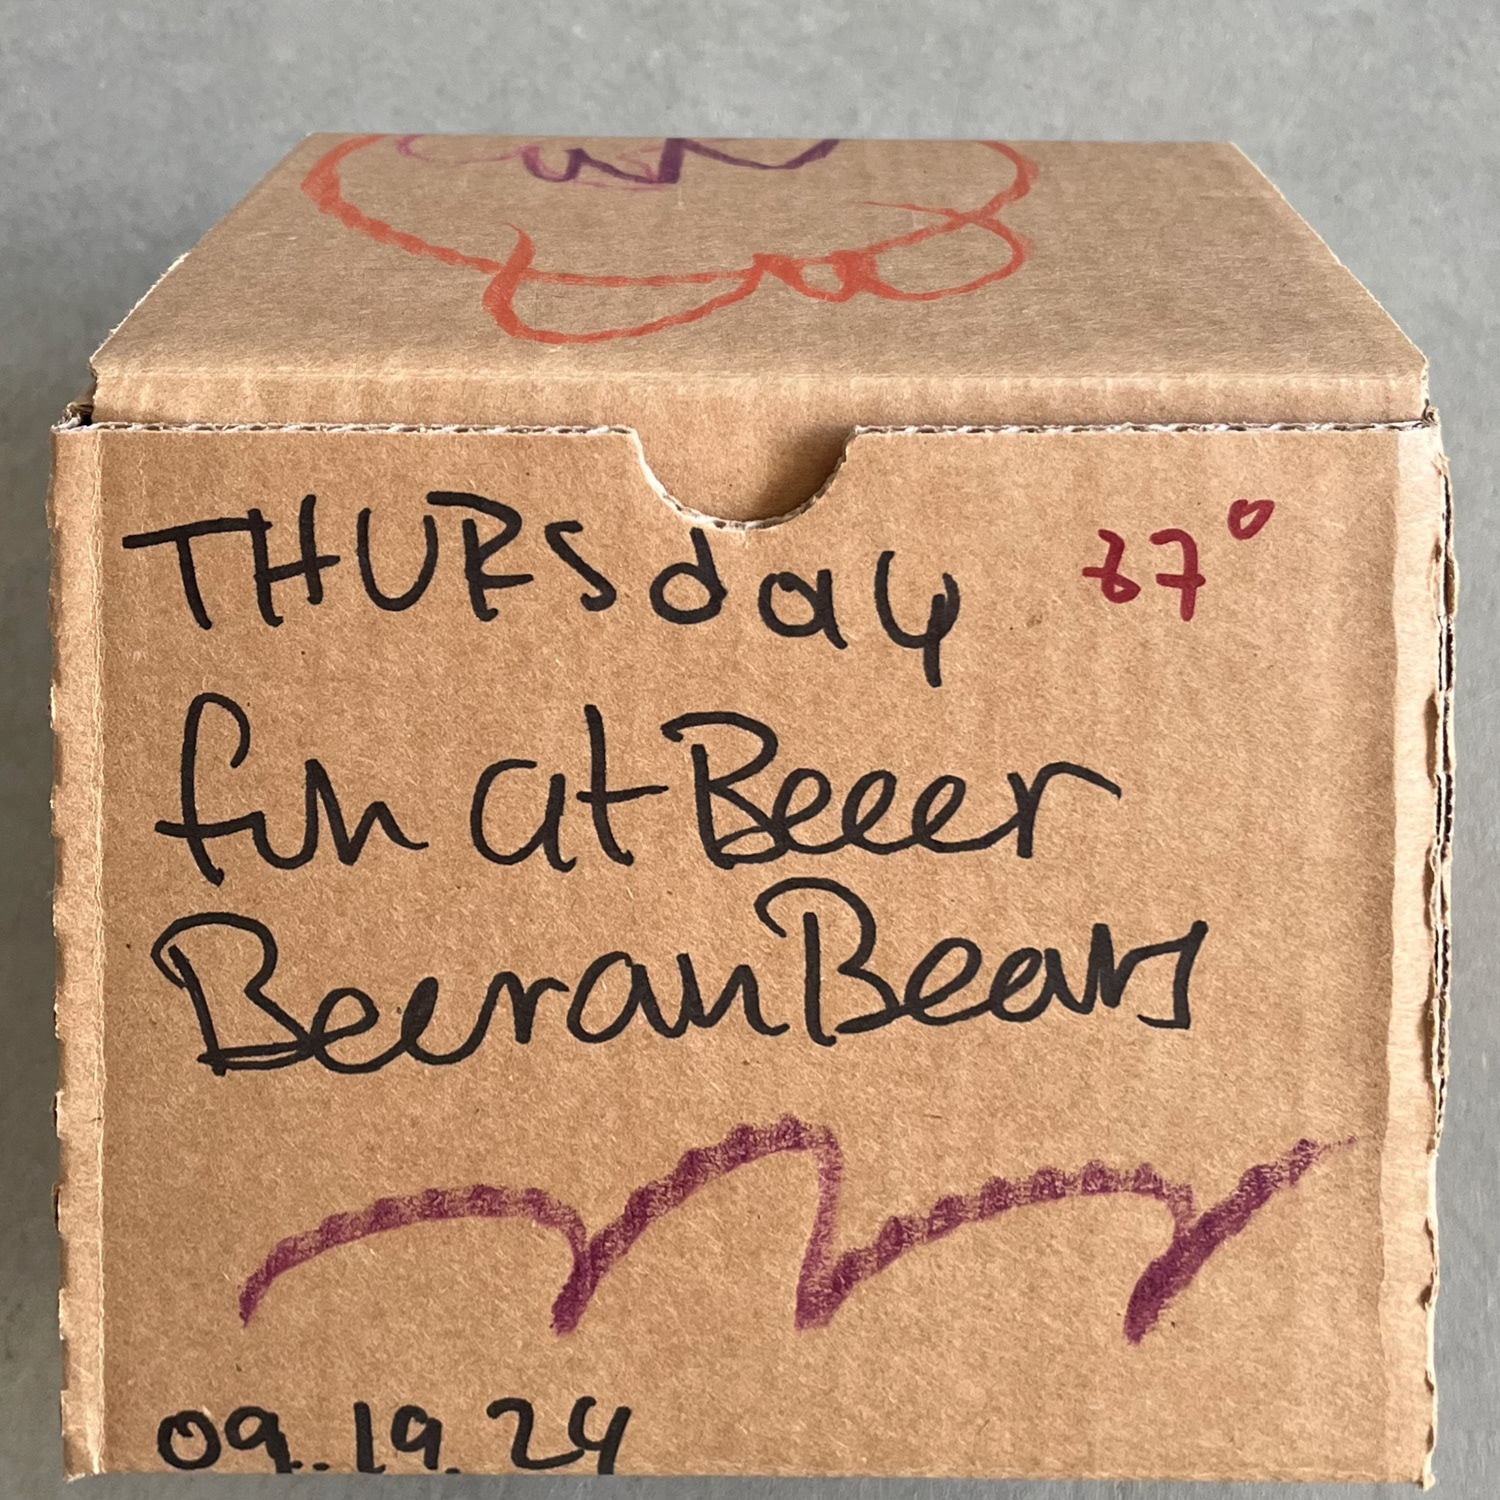 THURSday 67°
fun at Beeer
BeeranBears
09.19.24